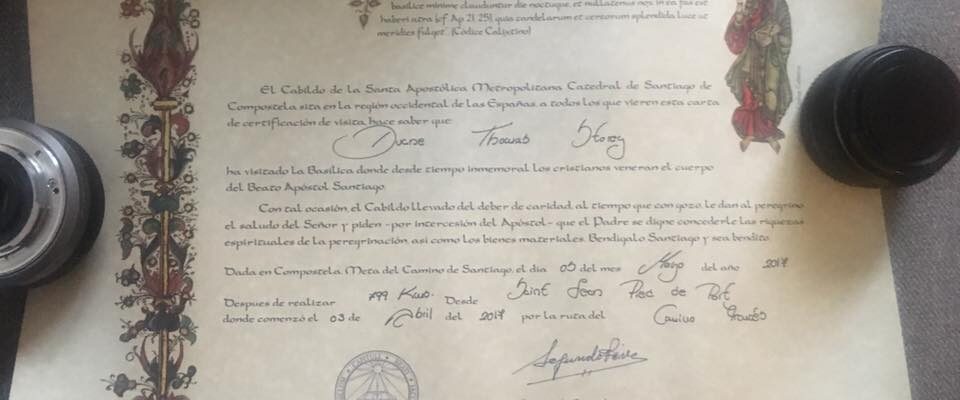 basilice minime clauduntur die noctuque, et nullatenus nox in ea fas est
haberi atra (cf. Ap 21, 25), quia candelarum et cereorum splendida luce ut
meridies fulget. (Códice Calixtino)
El Cabildo de la Santa Apostólica Metropolitana Catedral de Santiago de
Compostela sita en la región occidental de las Españas, a todos los que vieren esta carta
de certificación de visita, hace saber que:
Duane Thomas Storey
ha visitado la Basílica donde desde tiempo inmemorial los cristianos veneran el cuerpo
del Beato Apóstol Santiago.
Con tal ocasión, el Cabildo llevado del deber de caridad, al tiempo que con gozo, le dan al peregrino
el saludo del Señor y piden -por intercesión del Apóstol- que el Padre se digne concederle las riquezas
espirituales de la peregrinación, así como los bienes materiales. Bendígalo Santiago y sea bendito.
Dada en Compostela, Meta del Camino de Santiago, el día 05 del mes Mayo del año 2017
Despues de realizar 799 Kms. Desde Saint Jean Pied de Port
donde comenzó el 03 de Abril del 2017 por la ruta del Camino Francés